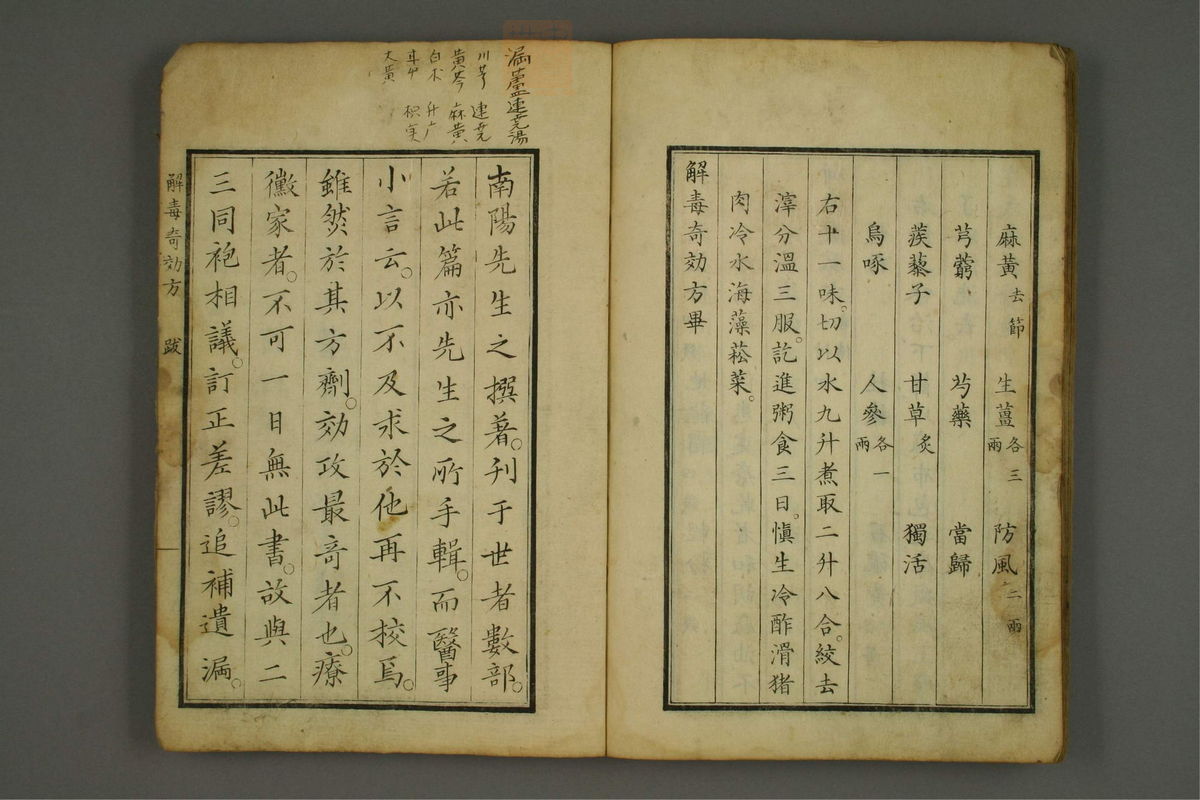 麻黃去節　生薑各三兩　防風二兩
芎藭　芍藥　當歸
蒺藜子　甘草炙　獨活
烏啄　人參各一兩
右十一味。切以水九升煮取二升八合。絞去
滓分溫三服。訖進粥食三日。愼生冷酢滑猪
肉冷水海藻菘菜。
解毒奇効方畢
漏蘆連尭湯
川芎　連尭
黃芩　麻黃
白朮　升广
甘艸　枳实
大黃
南陽先生之撰著。刊于世者數部。
若此篇亦先生之所手輯。而醫事
小言云。以不及求於他再不校焉。
雖然於其方劑。効政最奇者也。療
黴家者。不可一日無此書。故與二
三同袍相議。訂正差謬。追補遺漏。
解毒奇効方　跋